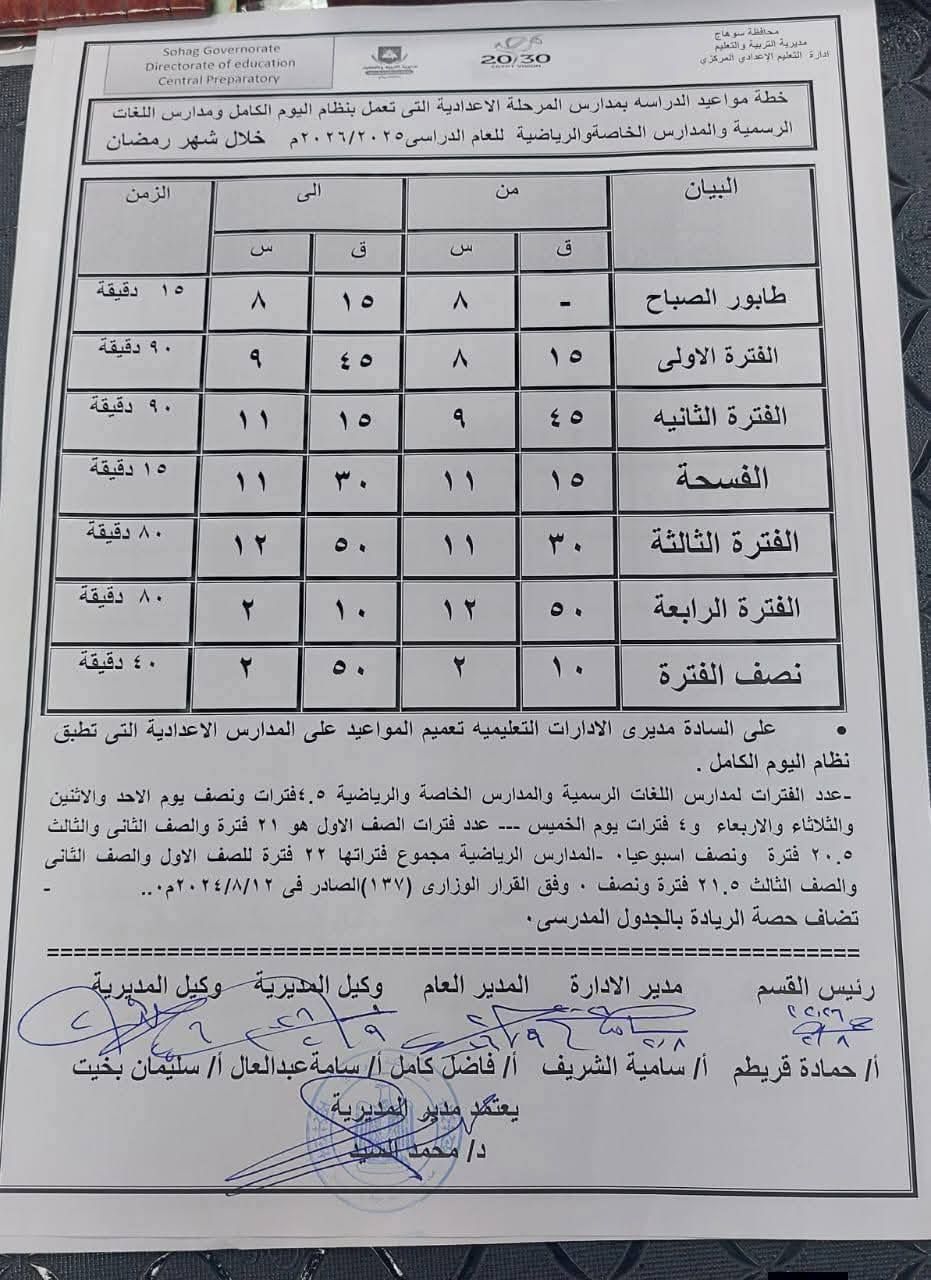 محافظة سوهاج
مديرية التربية والتعليم
ادارة التعليم الإعدادي المركزي
20/30
EGYPT VISION
Sohag Governorate
Directorate of education
Central Preparatory
خطة مواعيد الدراسه بمدارس المرحلة الاعدادية التى تعمل بنظام اليوم الكامل ومدارس اللغات
الرسمية والمدارس الخاصةوالرياضية للعام الدراسى٢٠٢٦/٢٠٢٥م خلال شهر رمضان
البيان من الى الزمن
ق س ق س
طابور الصباح - ٨ ١٥ ٨ ١٥ دقيقة
الفترة الاولى ١٥ ٨ ٤٥ ٩ ٩٠ دقيقة
الفترة الثانيه ٤٥ ٩ ١٥ ١١ ٩٠ دقيقة
الفسحة ١٥ ١١ ٣٠ ١١ ١٥ دقيقة
الفترة الثالثة ٣٠ ١١ ٥٠ ١٢ ٨٠ دقيقة
الفترة الرابعة ٥٠ ١٢ ١٠ ٢ ٨٠ دقيقة
نصف الفترة ١٠ ٢ ٥٠ ٢ ٤٠ دقيقة
• على السادة مديرى الادارات التعليميه تعميم المواعيد على المدارس الاعدادية التى تطبق
نظام اليوم الكامل .
-عدد الفترات لمدارس اللغات الرسمية والمدارس الخاصة والرياضية ٤.٥فترات ونصف يوم الاحد والاثنين
والثلاثاء والاربعاء و٤ فترات يوم الخميس --- عدد فترات الصف الاول هو ٢١ فترة والصف الثانى والثالث
٢٠.٥ فترة ونصف اسبوعيا٠ -المدارس الرياضية مجموع فتراتها ٢٢ فترة للصف الاول والصف الثانى
والصف الثالث ٢١.٥ فترة ونصف ٠ وفق القرار الوزارى (١٣٧)الصادر فى ٢٠٢٤/٨/١٢م٠.. -
تضاف حصة الريادة بالجدول المدرسى٠
رئيس القسم مدير الادارة المدير العام وكيل المديرية وكيل المديرية
أ/ حمادة قريطم أ/ سامية الشريف أ/ فاضل كامل أ/ سامةعبدالعال أ/ سليمان بخيت
يعتمد مدير المديرية
د/ محمد السيد